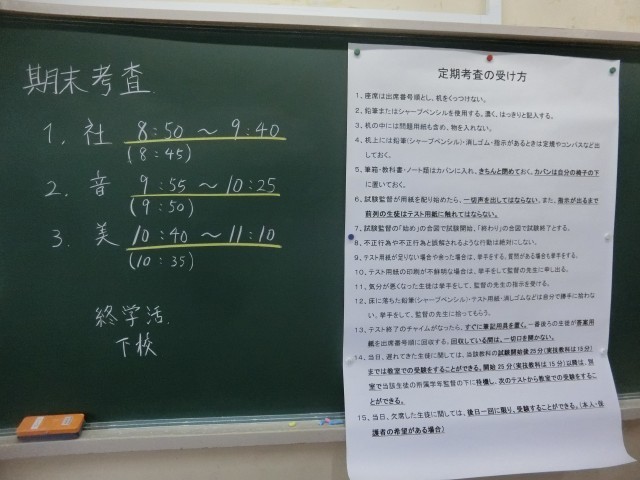 期末考査
1. 社 8:50 ~ 9:40
(8:45)
2. 音 9:55 ~ 10:25
(9:50)
3. 美 10:40 ~ 11:10
(10:35)
終学活.
下校
定期考査の受け方
1、座席は出席番号順とし、机をくっつけない。
2、鉛筆またはシャープペンシルを使用する。濃く、はっきりと記入する。
3、机の中には問題用紙も含め、物を入れない。
4、机上には鉛筆(シャープペンシル)・消しゴム・指示があるときは定規やコンパスなど出
しておく。
5、筆箱・教科書・ノート類はカバンに入れ、きちんと閉めておく。カバンは自分の椅子の下
に置いておく。
6、試験監督が用紙を配り始めたら、一切声を出してはならない。また、指示が出るまで
前列の生徒はテスト用紙に触れてはならない。
7、試験監督の「始め」の合図で試験開始、「終わり」の合図で試験終了とする。
8、不正行為や不正行為と誤解されるような行動は絶対にしない。
9、テスト用紙が足りない場合や余った場合は、挙手をする。質問がある場合も挙手をする。
10、テスト用紙の印刷が不鮮明な場合は、挙手をして監督の先生に申し出る。
11、気分が悪くなった生徒は挙手をして、監督の先生の指示を受ける。
12、床に落ちた鉛筆(シャープペンシル)・テスト用紙・消しゴムなどは自分で勝手に拾わな
い。挙手をして、監督の先生に拾ってもらう。
13、テスト終了のチャイムがなったら、すぐに筆記用具を置く。一番後ろの生徒が答案用
紙を出席番号順に回収する。回収している間は、一切口を開かない。
14、当日、遅れてきた生徒に関しては、当該教科の試験開始後25分(実技教科は15分)
までは教室での受験をすることができる。開始25分(実技教科は15分)以降は、別
室で当該生徒の所属学年監督の下に待機し、次のテストから教室での受験をするこ
とができる。
15、当日、欠席した生徒に関しては、後日一回に限り、受験することができる。(本人・保
護者の希望がある場合)